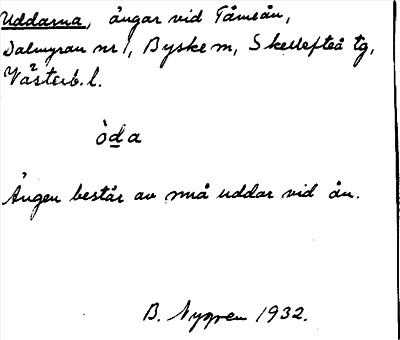 Uddarna, ängar vid Tåmeån,
Dalmyran nr 1, Byske m, Skellefteå tg,
Västerb. l.
òda
Ängen består av små uddar vid ån.
B. Nygren 1932.